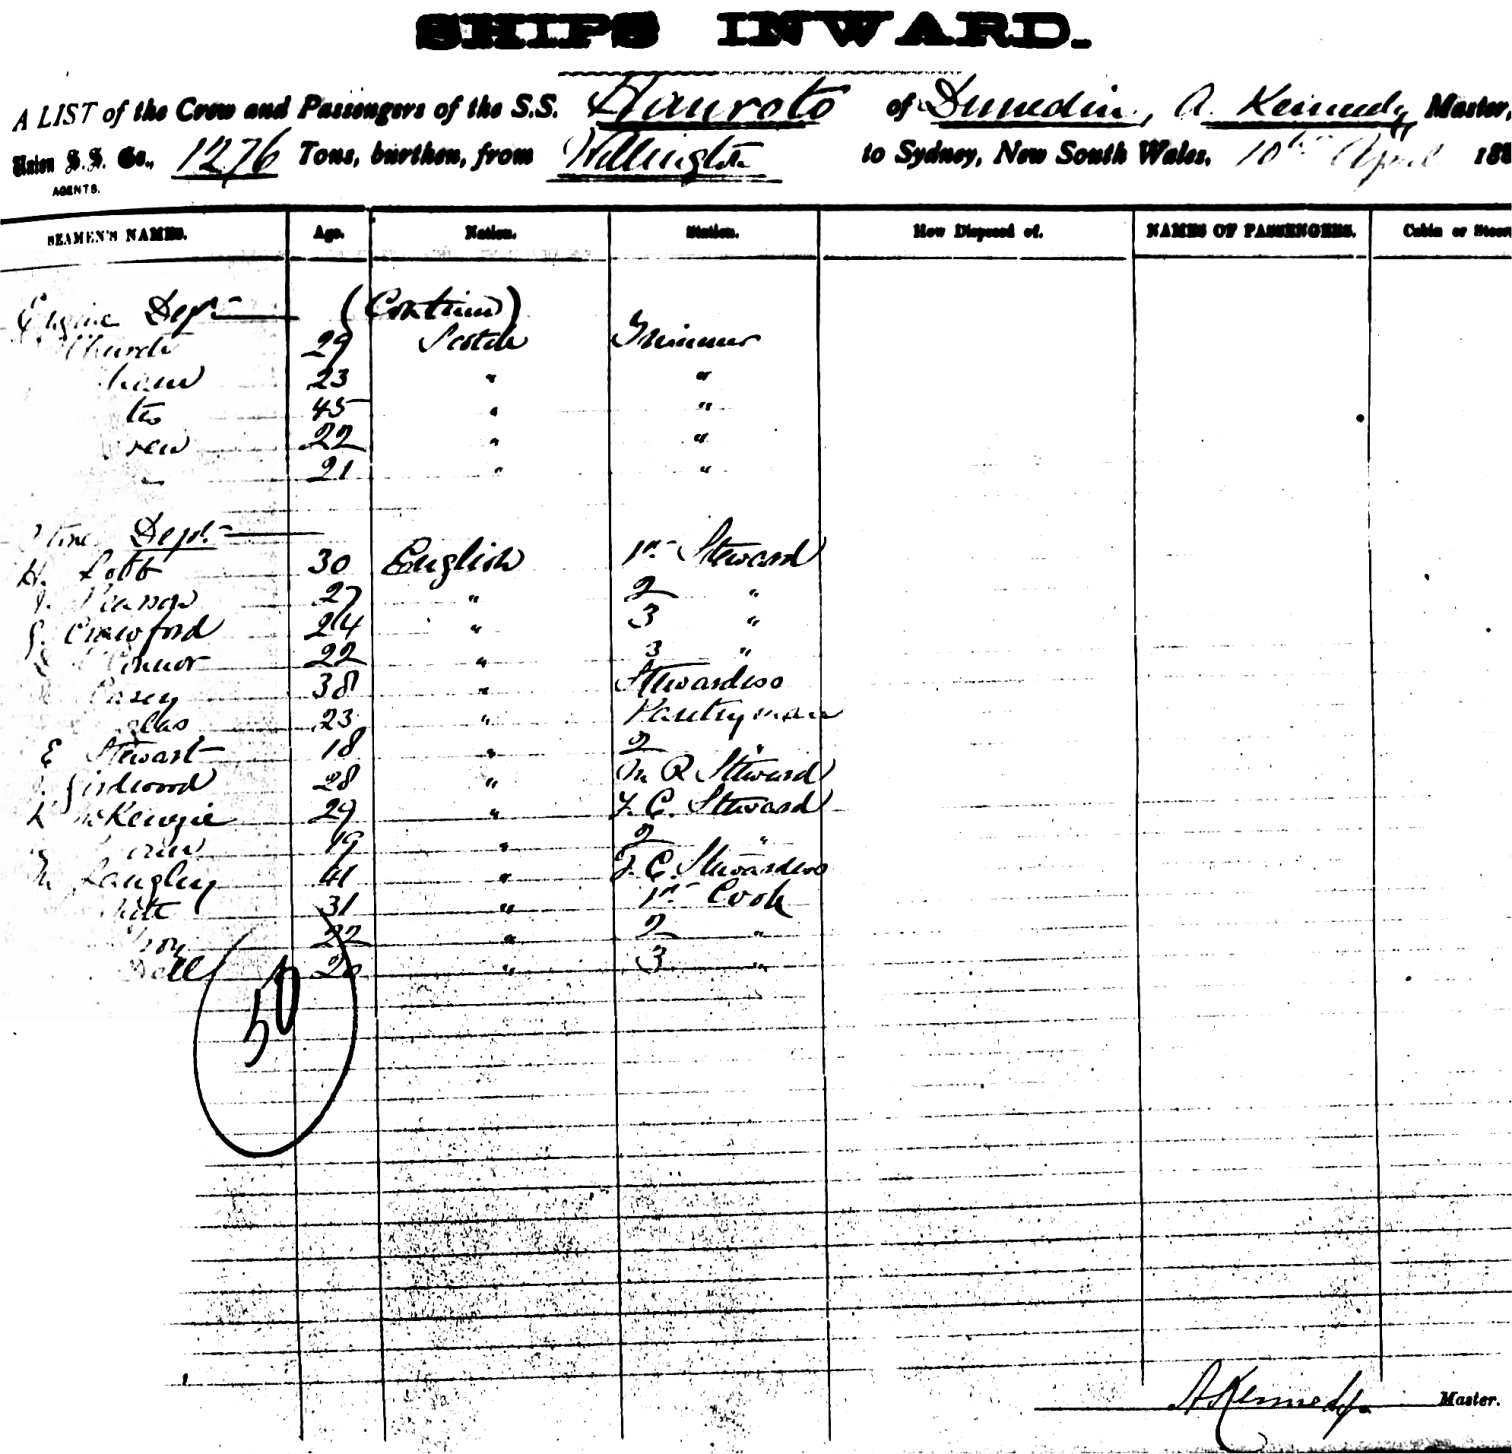 SHIPS INWARD.
A LIST of the Crew and Passengers of the S.S. Hauroto of Dunedin, A. Kennedy Master,
Union S.S. Co., 1276 Tons, burthen, from Wellington to Sydney, New South Wales, 10th April 188
AGENTS.
SEAMEN'S NAMES. Age. Nation. Station. How Disposed of. NAMES OF PASSENGERS. Cabin or Steer
Engine Dept (Continu)
Church 29 Scotch Trimmer
23 " "
45 " "
22 " "
21 " "
Dept
H. Lobb 30 English 1st Steward
J. Pearson 27 " 2 "
G. Crawford 24 " 3 "
Connor 22 " 3 "
Casey 38 " Stewardess
23 " Pantryman
E Stewart 18 " 2 "
Girdwood 28 " M R Steward
McKenzie 29 " F. C. Steward
19 " 2 "
M Langley 41 " F. C. Stewardess
31 " 1st Cook
22 " 2 "
Bell 20 " 3 "
50
A Kennedy Master.